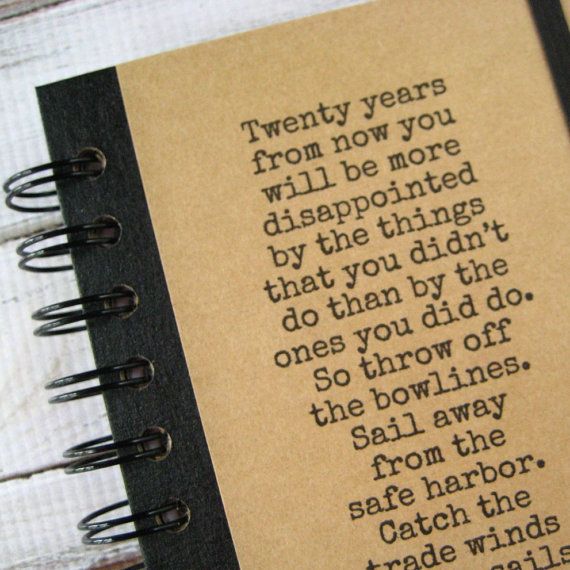 Twenty years
from now you
will be more
disappointed
by the things
that you didn't
do than by the
ones you did do.
So throw off
the bowlines.
Sail away
from the
safe harbor.
Catch the
trade winds
sails